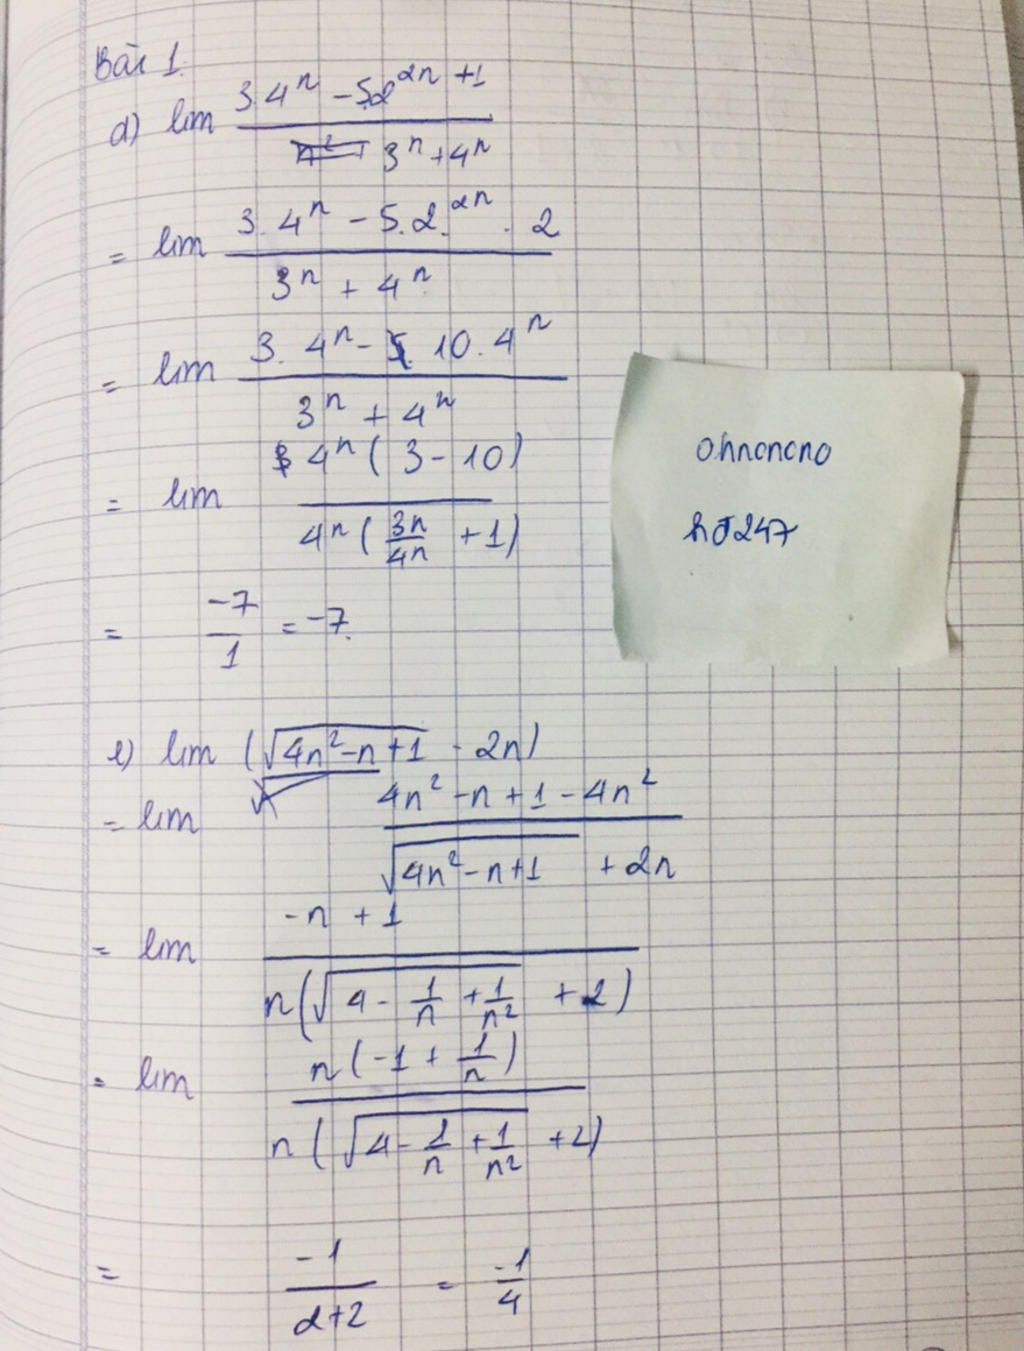 Bài 1.
d) lim (3.4^n - 5.2^(2n+1)) / (3^n + 4^n)
= lim (3.4^n - 5.2.^(2n) . 2) / (3^n + 4^n)
= lim (3.4^n - 10.4^n) / (3^n + 4^n)
= lim (4^n (3 - 10)) / (4^n (3n/4n + 1))
= -7/1 = -7.
e) lim (√(4n² - n + 1) - 2n)
= lim (4n² - n + 1 - 4n²) / (√(4n² - n + 1) + 2n)
= lim (-n + 1) / (n(√(4 - 1/n + 1/n²) + 2))
= lim (n(-1 + 1/n)) / (n(√(4 - 1/n + 1/n²) + 2))
= -1/(2+2) = -1/4
ohnoncno
h0247